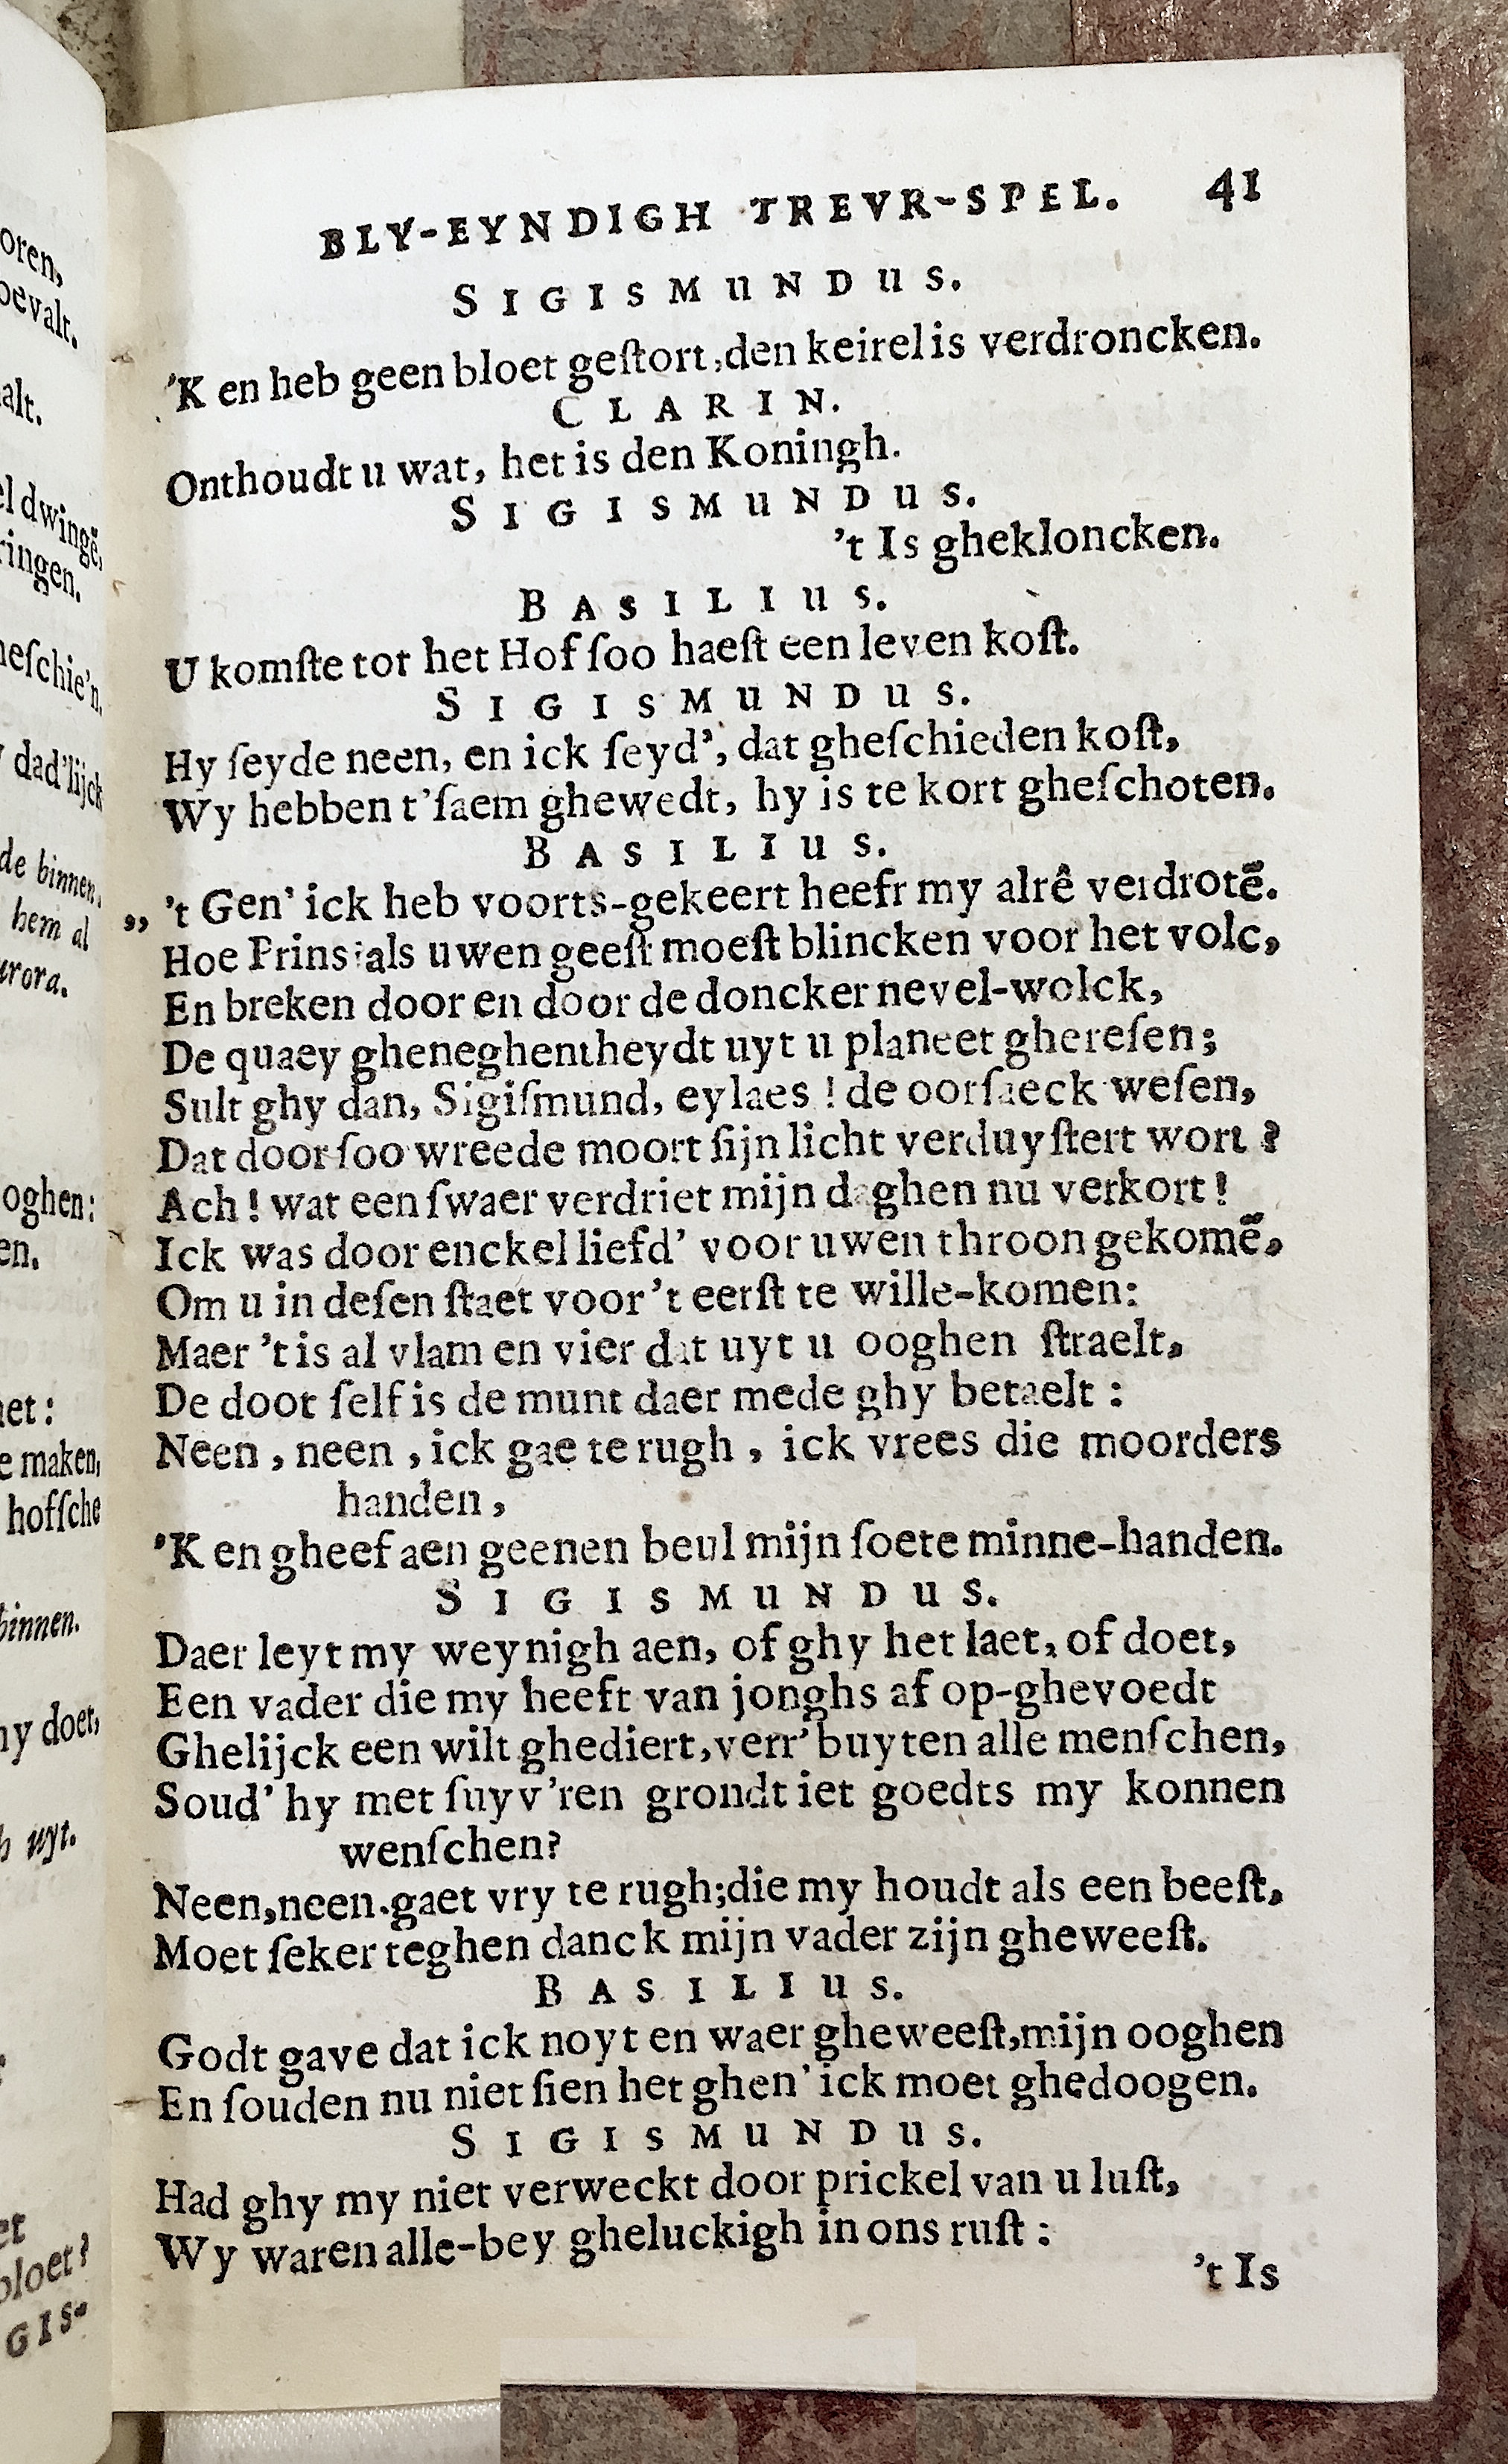 oren,
oevalt.
alt.
el dwingē,
ringen.
heſchie'n.
dad'lijck
de binnen.
hem al
urora.
oghen:
en.
het:
e maken,
hofſche
binnen.
hy doet,
uyt.
et
bloet?
GIS-
BLY-EYNDIGH TREVR-SPEL. 41
SIGISMUNDUS.
'K en heb geen bloet geſtort, den keirel is verdroncken.
CLARIN.
Onthoudt u wat, het is den Koningh.
SIGISMUNDUS.
't Is ghekloncken.
BASILIUS.
U komſte tot het Hof ſoo haeſt een leven koſt.
SIGISMUNDUS.
Hy ſeyde neen, en ick ſeyd', dat gheſchieden koſt,
Wy hebben t'ſaem ghewedt, hy is te kort gheſchoten.
BASILIUS.
„ 't Gen' ick heb voorts-gekeert heeft my alrê verdrotē.
Hoe Prins: als uwen geeſt moeſt blincken voor het volc,
En breken door en door de doncker nevel-wolck,
De quaey gheneghentheydt uyt u planeet ghereſen;
Sult ghy dan, Sigiſmund, eylaes! de oorſaeck weſen,
Dat door ſoo wreede moort ſijn licht verduyſtert wort?
Ach! wat een ſwaer verdriet mijn daghen nu verkort!
Ick was door enckel liefd' voor uwen throon gekomē,
Om u in deſen ſtaet voor 't eerſt te wille-komen:
Maer 't is al vlam en vier dat uyt u ooghen ſtraelt,
De doot ſelf is de munt daer mede ghy betaelt:
Neen, neen, ick gae te rugh, ick vrees die moorders
handen,
'K en gheef aen geenen beul mijn ſoete minne-handen.
SIGISMUNDUS.
Daer leyt my weynigh aen, of ghy het laet, of doet,
Een vader die my heeft van jonghs af op-ghevoedt
Ghelijck een wilt ghediert, verr' buyten alle menſchen,
Soud' hy met ſuyv'ren grondt iet goedts my konnen
wenſchen?
Neen, neen. gaet vry te rugh; die my houdt als een beeſt,
Moet ſeker teghen danck mijn vader zijn gheweeſt.
BASILIUS.
Godt gave dat ick noyt en waer gheweeſt, mijn ooghen
En ſouden nu niet ſien het ghen' ick moet ghedoogen.
SIGISMUNDUS.
Had ghy my niet verweckt door prickel van u luſt,
Wy waren alle-bey gheluckigh in ons ruſt:
't Is